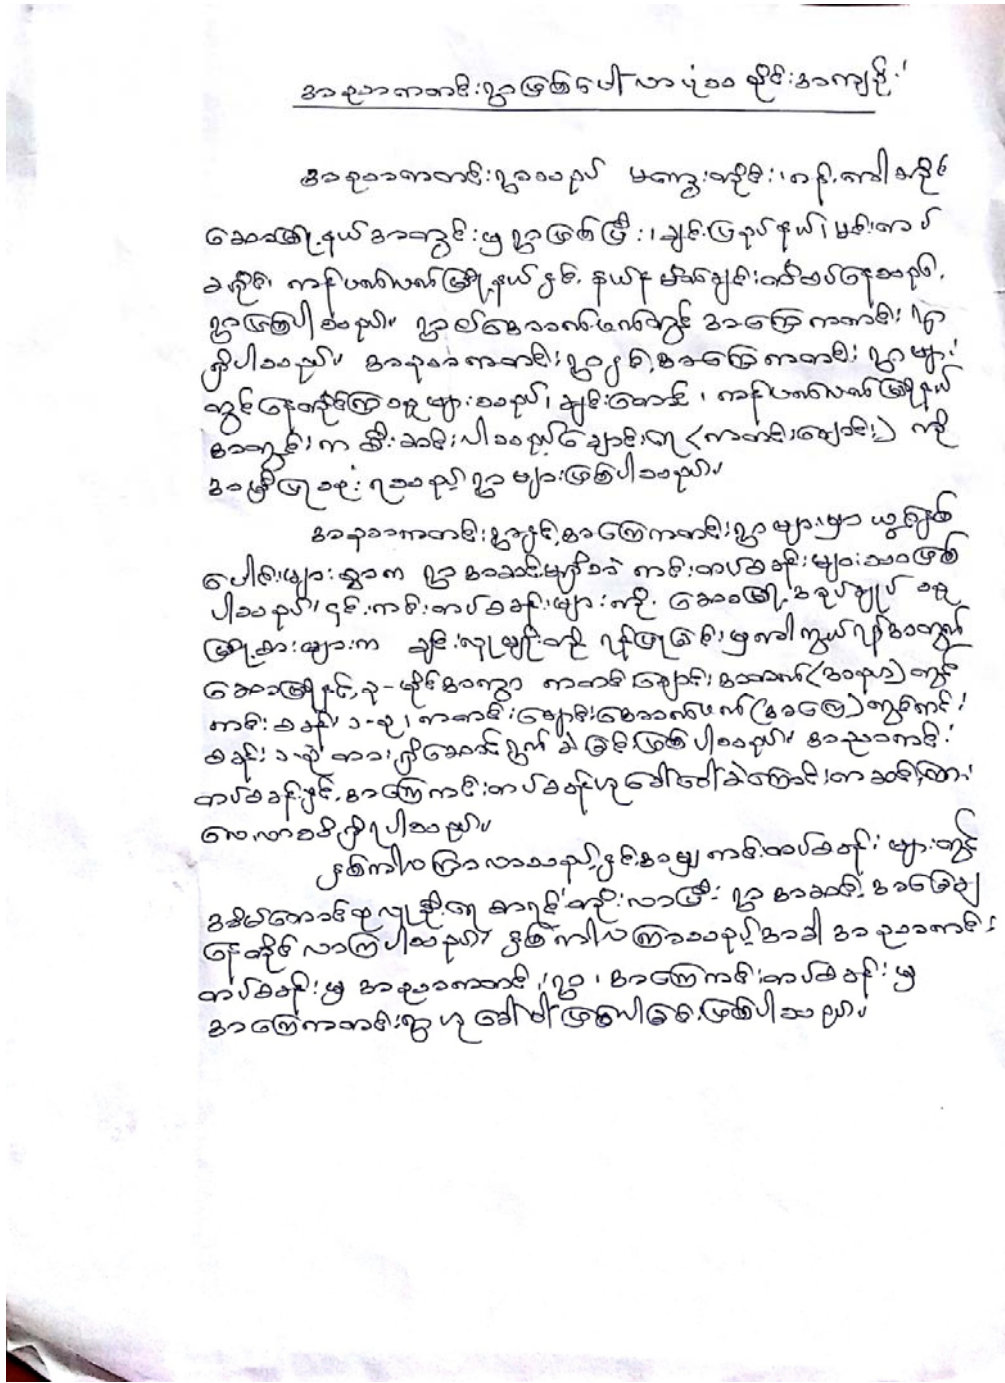 အညာကတင်းရွာဖြစ်ပေါ်လာပုံသမိုင်းအကျဉ်း
အညာကတင်းရွာသည် မကွေးတိုင်း၊ ဂန့်ဂေါခရိုင်
ဆောမြို့နယ်အတွင်းမှ ရွာဖြစ်ပြီး၊ ချင်းပြည်နယ်၊ မင်းတပ်
ခရိုင်၊ ကန်ပက်လက်မြို့နယ်နှင့် နယ်နမိတ်ချင်းထိစပ်နေသည့်
ရွာဖြစ်ပါသည်။ ရွာ၏အောက်ဖက်တွင် အကြေကတင်းရွာ
ရှိပါသည်။ အညာကတင်းရွာနှင့်အကြေကတင်းရွာများ
တွင်နေထိုင်ကြသူများသည်၊ ချင်းတောင်၊ ကန်ပက်လက်မြို့နယ်
အတွင်းက စီးဆင်းပါသည့်ချောင်းရေ (ကတင်းချောင်း) ကို
အမှီပြုသုံးရသည့်ရွာများဖြစ်ပါသည်။
အညာကတင်းရွာနှင့်အကြေကတင်းရွာများမှာ ယခုနှစ်
ပေါင်းများစွာက ရွာအဆင့်မရှိသဲ ကင်းတပ်စခန်းများသာဖြစ်
ပါသည်၊ ၎င်းကင်းတပ်စခန်းများကို ဆောမြို့အုပ်ချုပ်သူ
မြို့စားများက ချင်းလူမျိုးတို့ ရန်ပြုခြင်းမှကာကွယ်ရန်အတွက်
ဆောမြို့နှင့် ၃-မိုင်အကွာ ကတင်းချောင်းအထက်(အညာ)တွင်
ကင်းစခန်း ၁-ခု၊ ကတင်းချောင်းအောက်ဖက်(အကြေ)တွင်ကင်း
စခန်း ၁-ခု ထားရှိဆောင်ရွက်ခဲ့ခြင်းဖြစ်ပါသည်။ အညာကင်း
တပ်စခန်းနှင့် အကြေကင်းတပ်စခန်းဟုခေါ်ဝေါ်ခဲ့ကြောင်း တဆင့်ကြား
လေ့လာသိရှိရပါသည်။
နှစ်ကာလကြာလာသည်နှင့်အမျှ ကင်းတပ်စခန်းများတွင်
အိမ်ထောင်စုလူဦးရေ စာရင်းတိုးလာပြီး ရွာအဆင့် အခြေချ
နေထိုင်လာကြပါသည်၊ နှစ်ကာလကြာသည့်အခါ အညာကင်း
တပ်စခန်းမှ အညာကတင်းရွာ၊ အကြေကင်းတပ်စခန်းမှ
အကြေကတင်းရွာဟုခေါ်ဝေါ်ဖြစ်ပေါ်ခြင်းဖြစ်ပါသည်။